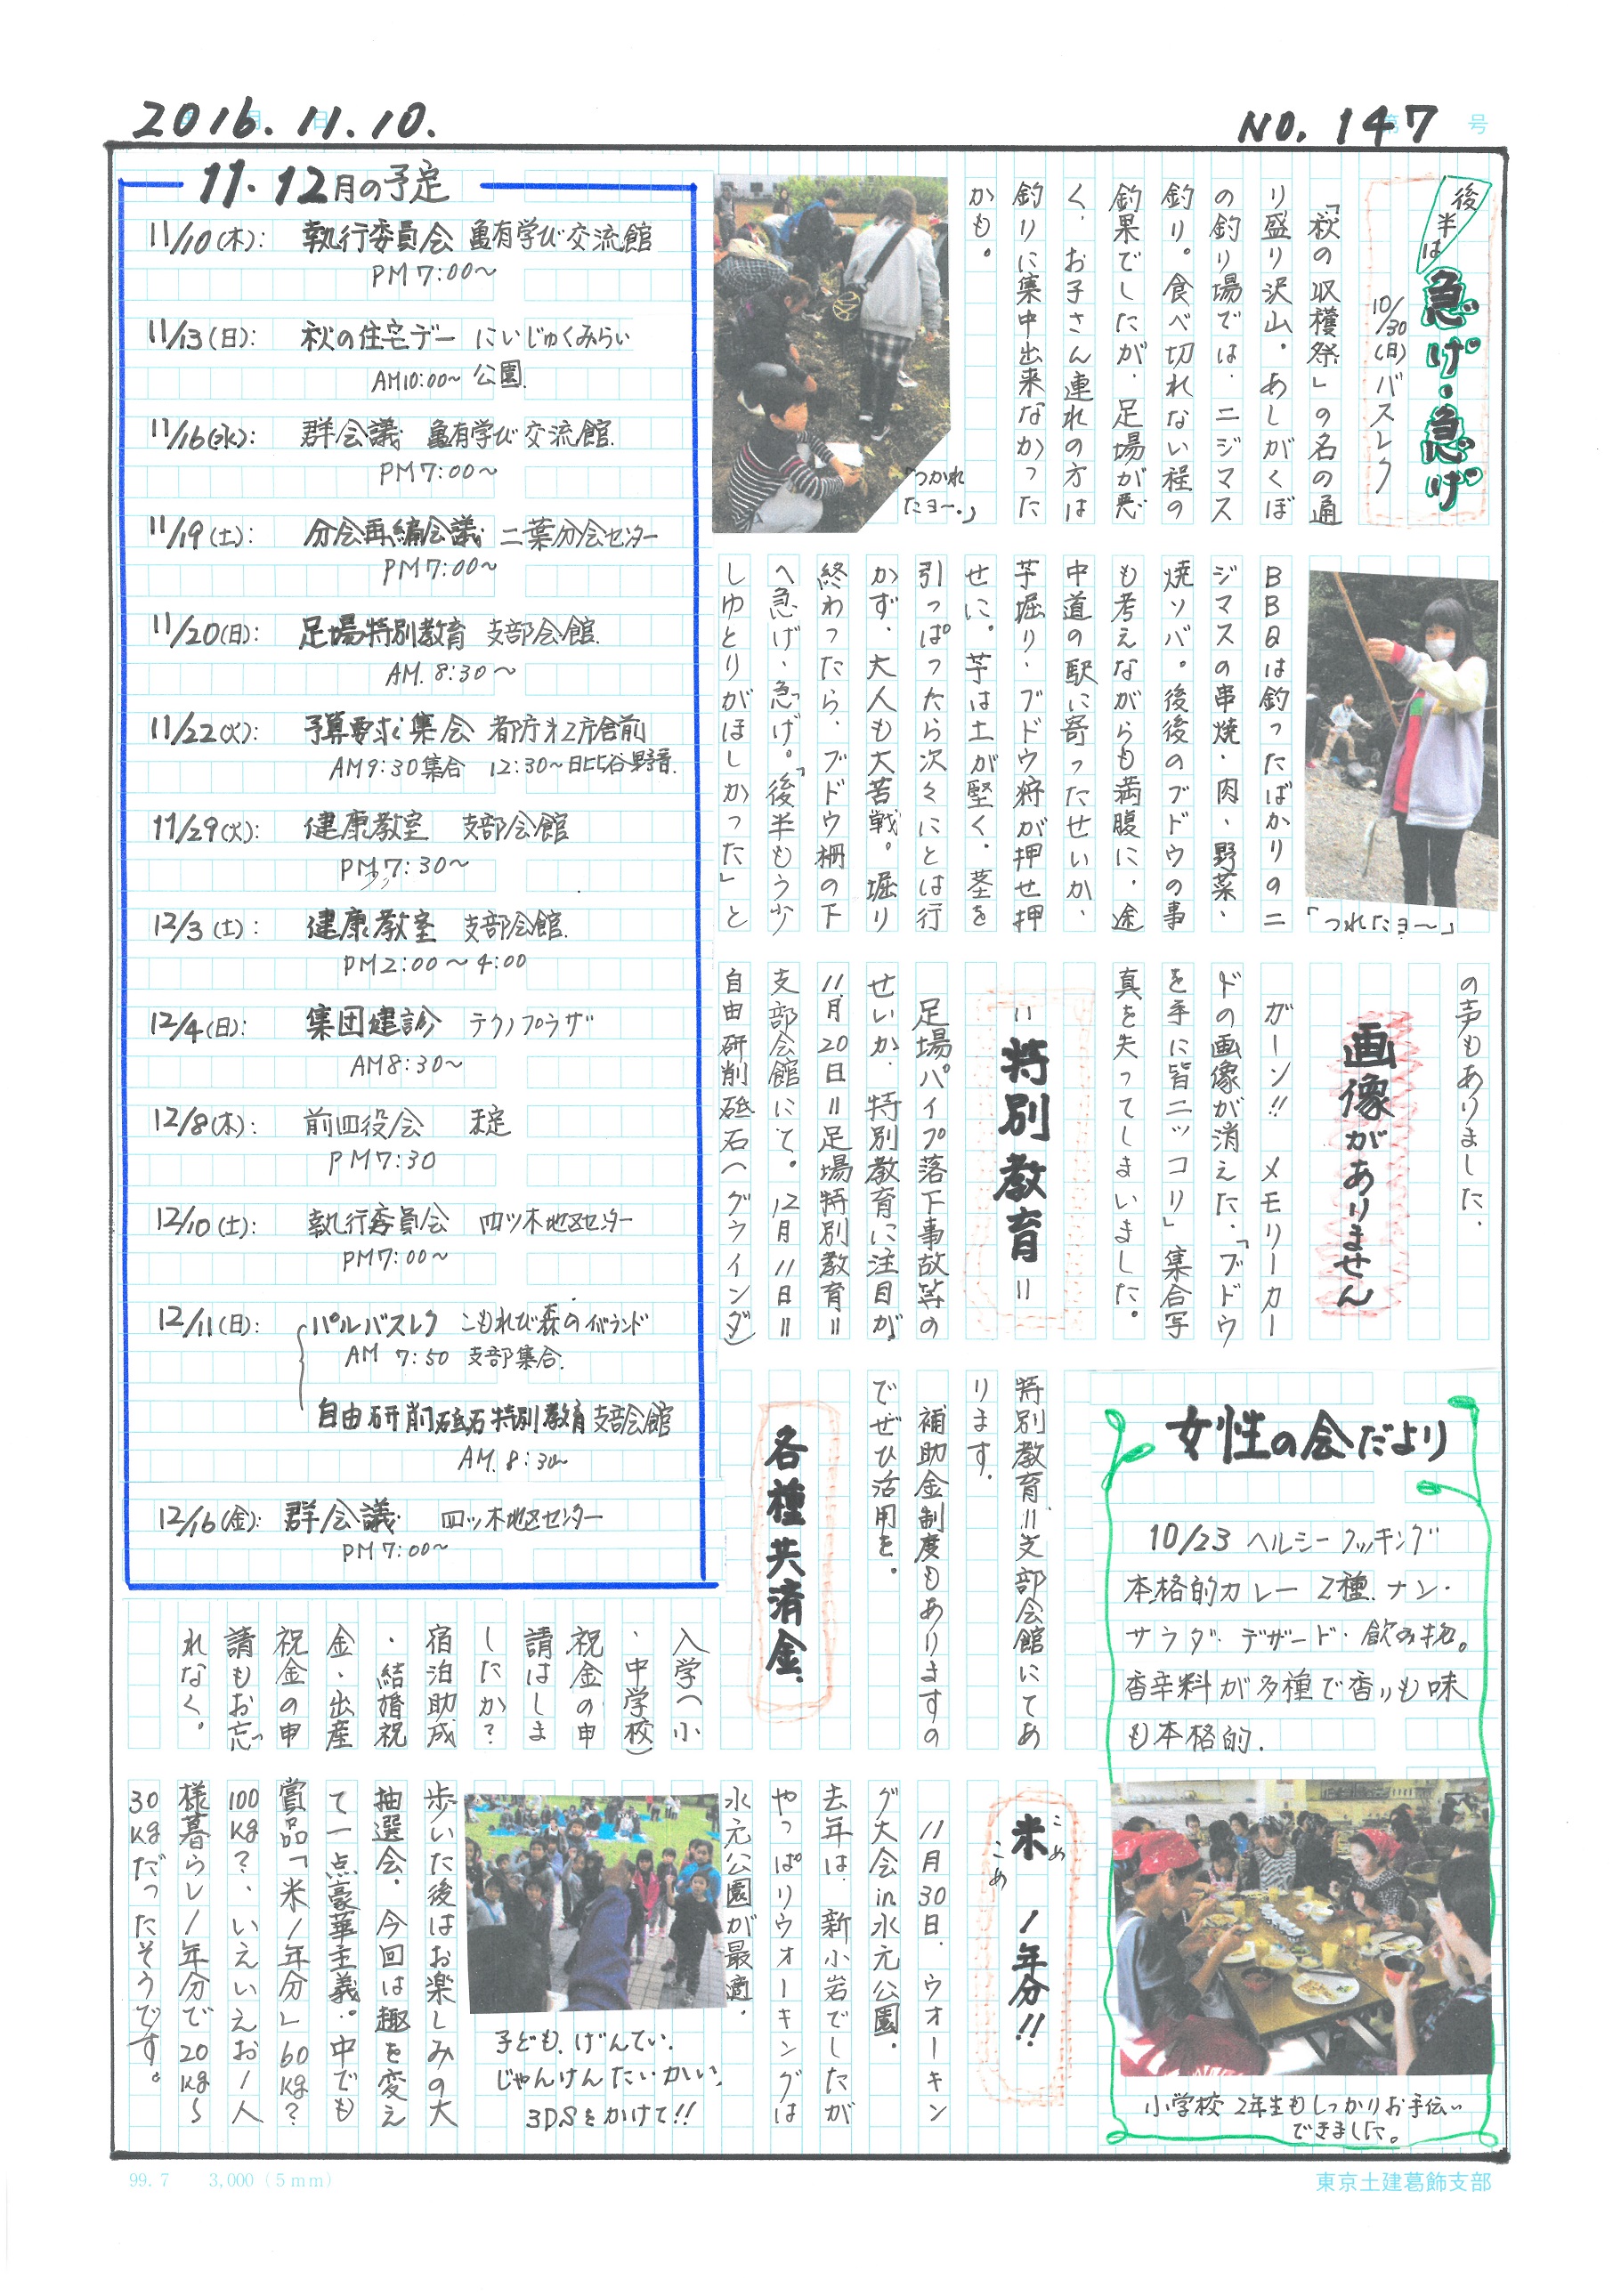 2016.11.10.
NO. 147
第 号
後半は
急げ・急げ
10/30(日)バスレク
「秋の収穫祭」の名の通
り盛り沢山。あしがくぼ
の釣り場では、ニジマス
釣り。食べ切れない程の
釣果でしたが、足場が悪
く、お子さん連れの方は
釣りに集中出来なかった
かも。
「つかれ
たヨー。」
「つれたョ〜」
BBQは釣ったばかりのニ
ジマスの串焼・肉・野菜・
焼ソバ。後後のブドウの事
も考えながらも満腹に、途
中道の駅に寄ったせいか、
芋堀り・ブドウ狩が押せ押
せに。芋は土が堅く、茎を
引っぱったら次々にとは行
かず、大人も大苦戦。堀り
終わったら、ブドウ棚の下
へ急げ、急げ。「後半もう少
しゆとりがほしかった」と
の声もありました。
画像がありません
ガーン!! メモリーカー
ドの画像が消えた、「ブドウ
を手に皆ニッコリ」集合写
真を失ってしまいました。
=特別教育=
足場パイプ落下事故等の
せいか、特別教育に注目が
11月20日=足場特別教育=
支部会館にて。12月11日=
自由研削砥石(グラインダ)
特別教育=支部会館にてあ
ります。
補助金制度もありますの
でぜひ活用を。
各種共済金
入学(小
・中学校)
祝金の申
請はしま
したか?
宿泊助成
・結婚祝
金・出産
祝金の申
請もお忘
れなく。
女性の会だより
10/23 ヘルシークッキング
本格的カレー 2種、ナン・
サラダ・デザード・飲み物。
香辛料が多種で香りも味
も本格的。
小学校2年生もしっかりお手伝い
できました。
米 1年分!!
こめ
こめ
11月30日、ウオーキン
グ大会in水元公園。
去年は、新小岩でしたが
やっぱりウォーキングは
水元公園が最適。
歩いた後はお楽しみの大
抽選会、今回は趣を変え
て一点豪華主義。中でも
賞品「米1年分」60kg?
100kg?、いえいえお1人
様暮らし1年分で20kg〜
30kgだったそうです。
子ども、げんてい、
じゃんけんたいかい。
3DSをかけて!!
11・12月の予定
11/10(木): 執行委員会 亀有学び交流館
PM7:00〜
11/13(日): 秋の住宅デー にいじゅくみらい
AM10:00〜 公園.
11/16(水): 群会議 亀有学び交流館.
PM7:00〜
11/19(土): 分会再編会議 二葉分会センター
PM7:00〜
11/20(日): 足場特別教育 支部会館.
AM.8:30〜
11/22(火): 予算要求集会 都庁オ2庁舎前
AM9:30集合 12:30〜日比谷野音.
11/29(火): 健康教室 支部会館
PM7:30〜
12/3(土): 健康教室 支部会館.
PM2:00〜4:00
12/4(日): 集団健診 テクノプラザ
AM8:30〜
12/8(木): 前四役会 未定
PM7:30
12/10(土): 執行委員会 四ツ木地区センター
PM7:00〜
12/11(日): パルバスレク こもれび森のイバランド
AM 7:50 支部集合.
自由研削砥石特別教育 支部会館
AM.8:30〜
12/16(金): 群会議 四ツ木地区センター
PM7:00〜
99.7 3,000(5mm)
東京土建葛飾支部